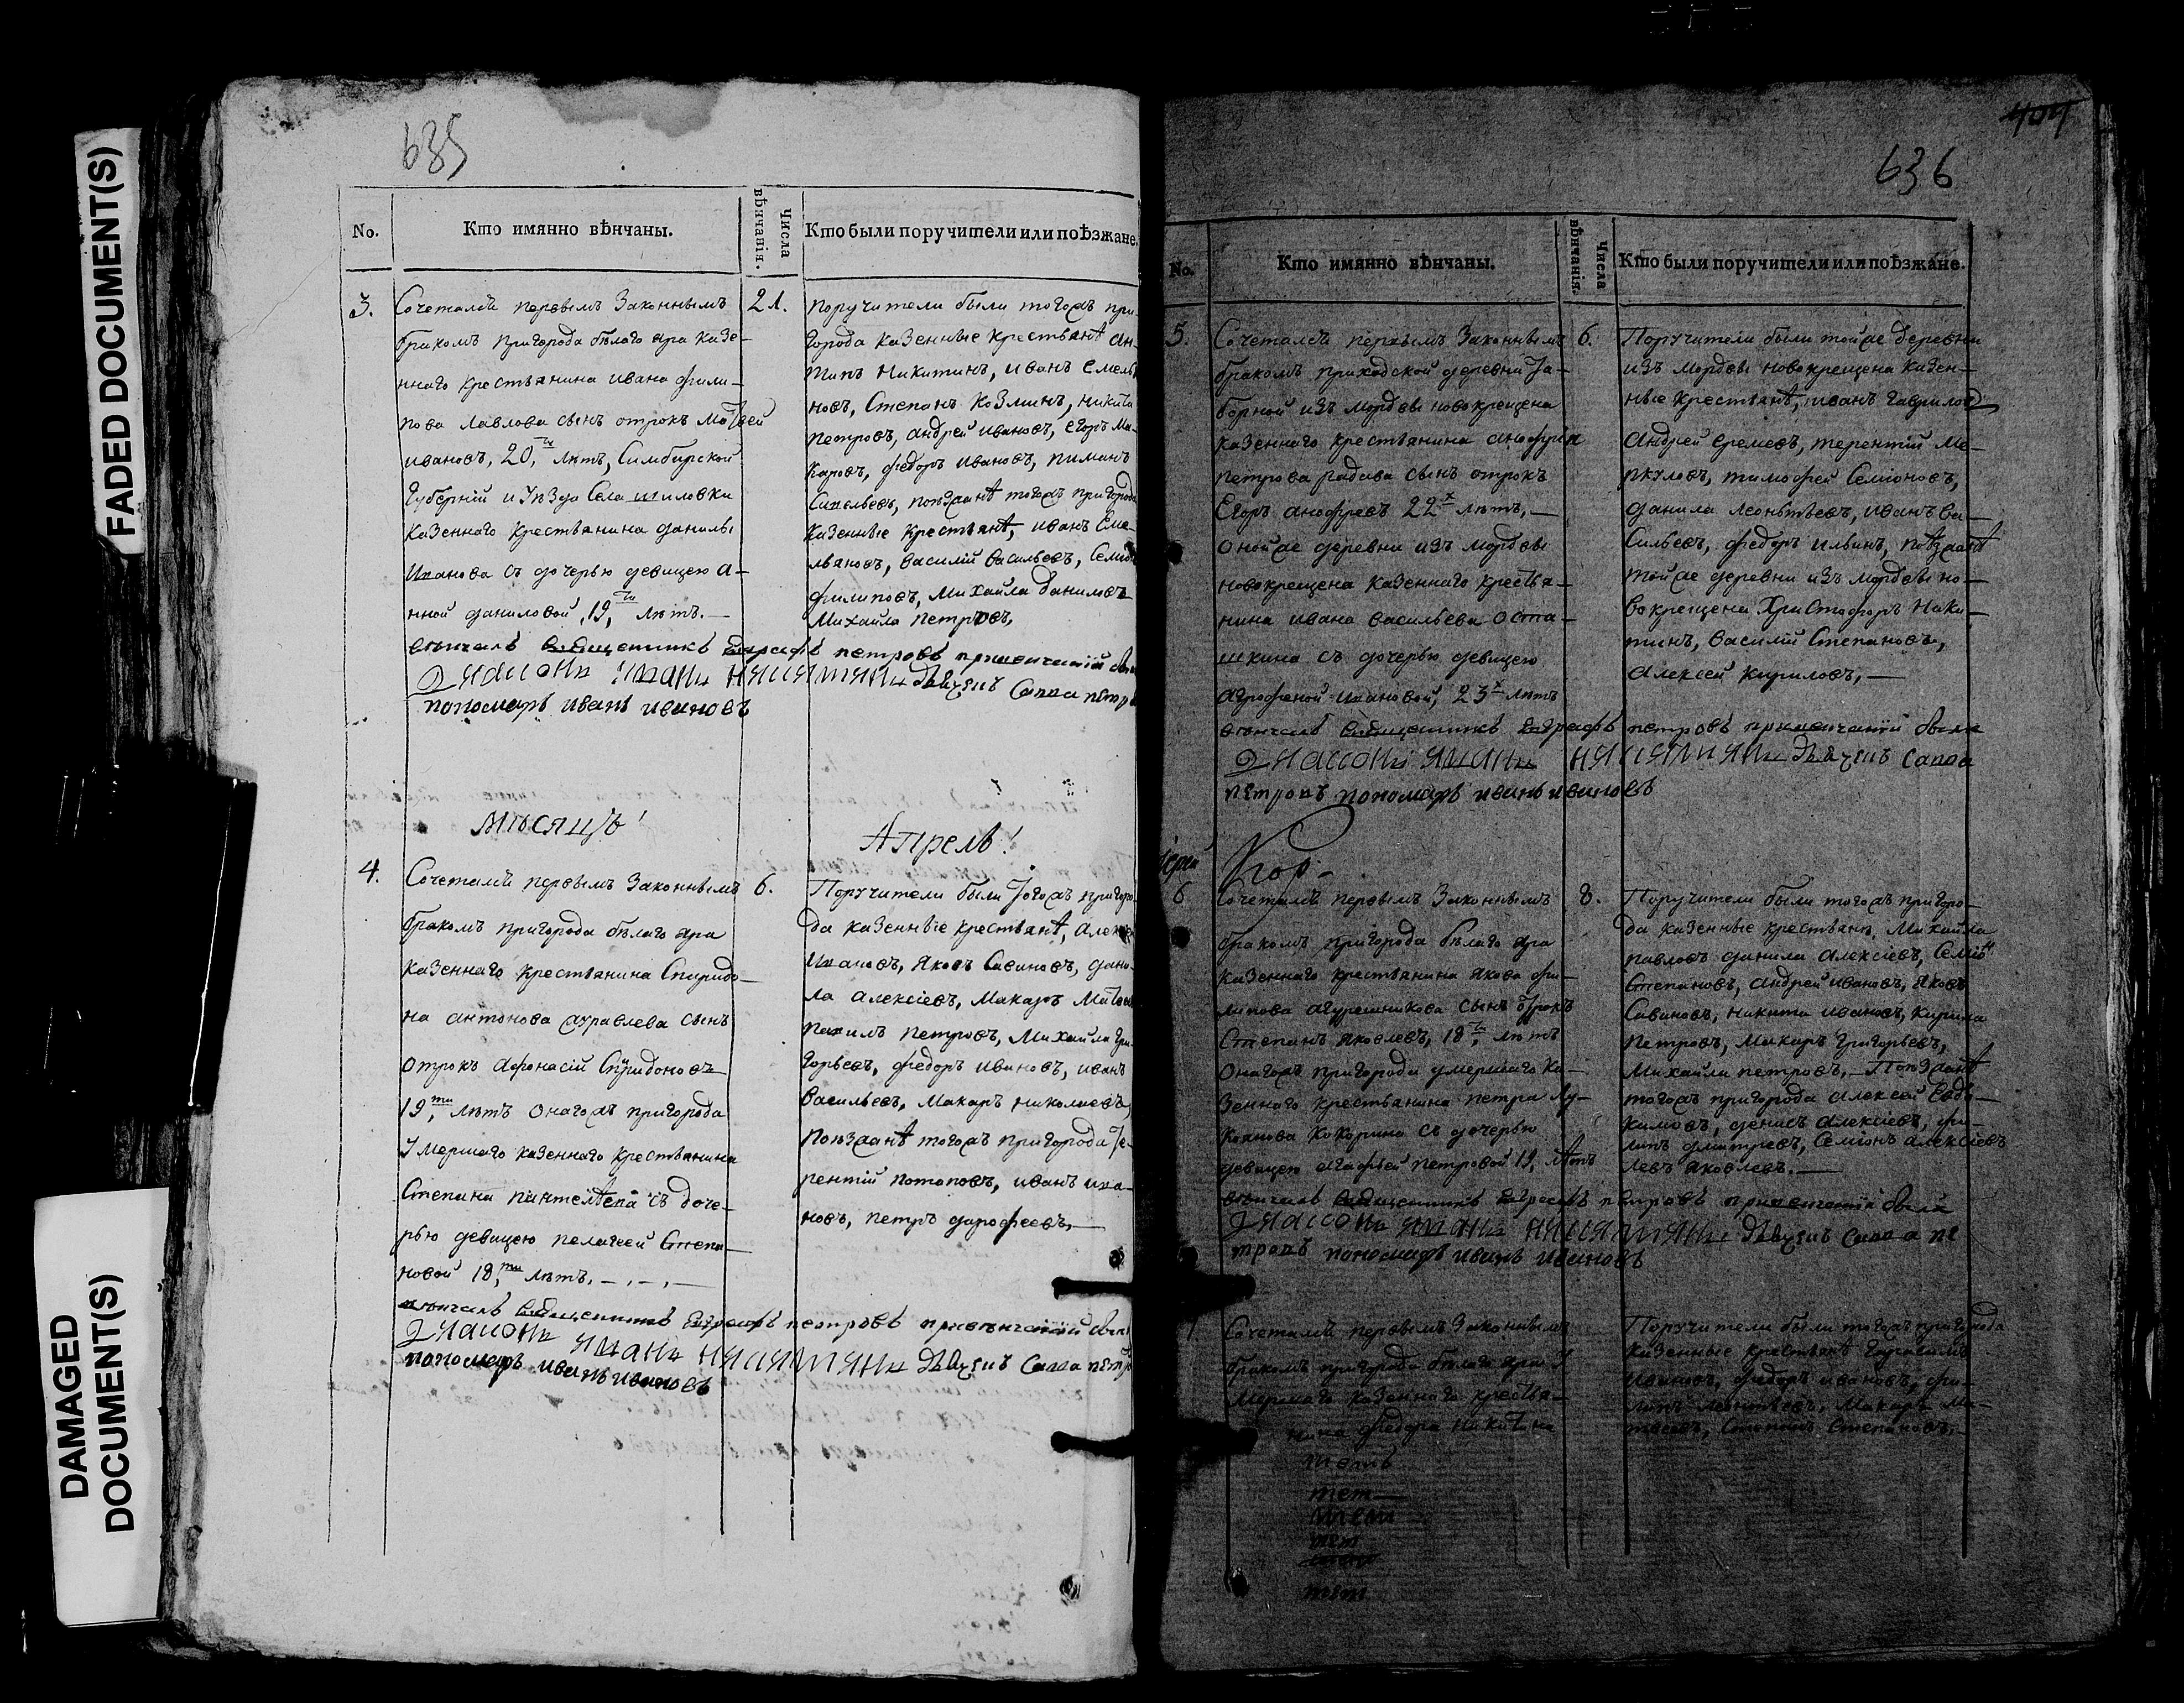 FADED DOCUMENT(S)
DAMAGED
DOCUMENT(S)
635
No.
Кто имянно вѣнчаны.
Числа
вѣнчанія.
Кто были поручители или поѣзжане.
3.
Сочетался первымъ законнымъ
бракомъ пригорода бѣлаго яра казе-
ннаго крестьянина ивана фили-
пова лавлова сынъ отрокъ матвей
ивановъ, 20, ти лѣтъ, Симбирской
губерніи и уѣзда села шиловки
казеннаго крестьянина данилы
иванова съ дочерью девицею а-
нной даниловой, 19, ти лѣтъ.
21.
Поручители были тогожъ при-
города казенные крестьянѣ ан-
типъ никитинъ, иванъ емелья
новъ, степанъ козминъ, никита
петровъ, андрей ивановъ, егоръ ма-
каровъ, федоръ ивановъ, пиманъ
савельевъ, поѣзжанѣ тогожъ пригорода
казенные крестьянѣ, иванъ еме-
льяновъ, василій васильевъ, семионъ
филиповъ, михайла даниловъ
михайла петровъ,
вѣнчалъ священникъ евграфъ петровъ привенчаніи были
диаконъ иванъ
дьячекъ савва петр
пономаръ иванъ ивановъ
мѣсяцъ!
Апрель!
4.
Сочетался первымъ законнымъ
бракомъ пригорода бѣлаго яра
казеннаго крестьянина спиридо-
на антонова журавлева сынъ
отрокъ афонасій спиридоновъ
19, ти лѣтъ онагожъ пригорода
умершаго казеннаго крестьянина
степана пантелѣева съ доче-
рью девицею пелагеей степа-
новой 18, ти лѣтъ.
6.
Поручители были тогожъ пригоро-
да казенные крестьянѣ,
ивановъ, яковъ савиновъ, дани-
ла алексіевъ, макаръ
пахимъ петровъ, михайла гри-
горьевъ, федоръ ивановъ, иванъ
васильевъ, макаръ николаевъ
поѣзжанѣ тогожъ пригорода те-
рентій потаповъ, иванъ ива-
новъ, петръ дорофеевъ,
вѣнчалъ священникъ евграфъ петровъ привѣнчаніи были
диаконъ иванъ
дьячекъ савва петр
пономаръ иванъ ивановъ
404
636
No.
Кто имянно вѣнчаны.
Числа
вѣнчанія.
Кто были поручители или поѣзжане.
5.
Сочетался первымъ законнымъ
бракомъ приходской деревни за-
борной изъ мордвы новокрещена
казеннаго крестьянина анофрія
петрова радава сынъ отрокъ
егоръ анофревъ 22 х лѣтъ,
онойже деревни изъ мордвы
новокрещена казеннаго крестья-
нина ивана васильева оста-
шкина съ дочерью девицею
агрофеной ивановой, 23 х лѣтъ
6.
Поручители были тойже деревни
изъ мордвы новокрещена казен-
ные крестьянѣ, иванъ гавриловъ
андрей еремеевъ, терентій ме-
ркуловъ, тимофей семіоновъ,
данила леонтьевъ, иванъ ва-
сильевъ, федоръ ильинъ, поѣзжанѣ
тойже деревни изъ мордвы но-
вокрещены христофоръ ники-
тинъ, василій степановъ,
алексей кириловъ,
вѣнчалъ священникъ евграфъ петровъ привенчаніи были
диаконъ иванъ
дьячекъ савва
петровъ пономаръ иванъ ивановъ
6
Сочетался первымъ законнымъ
бракомъ пригорода бѣлаго яра
казеннаго крестьянина якова фи-
липова
сынъ отрокъ
степанъ яковлевъ, 18, ти лѣтъ
онагожъ пригорода умершаго ка-
зеннаго крестьянина петра лу-
кьянова кокорина съ дочерью
девицею агафьей петровой 19, лѣтъ
8.
Поручители были тогожъ пригоро-
да казенные крестьянѣ, михайла
павловъ данила алексіевъ, семіонъ
степановъ, андрей ивановъ, яковъ
савиновъ, никита ивановъ, кирила
петровъ, макаръ григорьевъ,
михайла петровъ, поѣзжанѣ
тогожъ пригорода алексей евдо-
кимовъ, денисъ алексіевъ, фи-
липъ дмитревъ, семіонъ алексіевъ
левъ яковлевъ.
вѣнчалъ священникъ евграфъ петровъ привенчаніи были
диаконъ иванъ
дьячекъ савва пе
тровъ пономаръ иванъ ивановъ
Сочетался первымъ законнымъ
бракомъ пригорода бѣлаго яра у
мершаго казеннаго крестья-
нина федора никитина
Поручители были тогожъ пригорода
казенные крестьянѣ герасимъ
ивановъ, федоръ ивановъ, фи-
липъ леонтьевъ, макаръ ма-
твеевъ, степанъ степановъ,